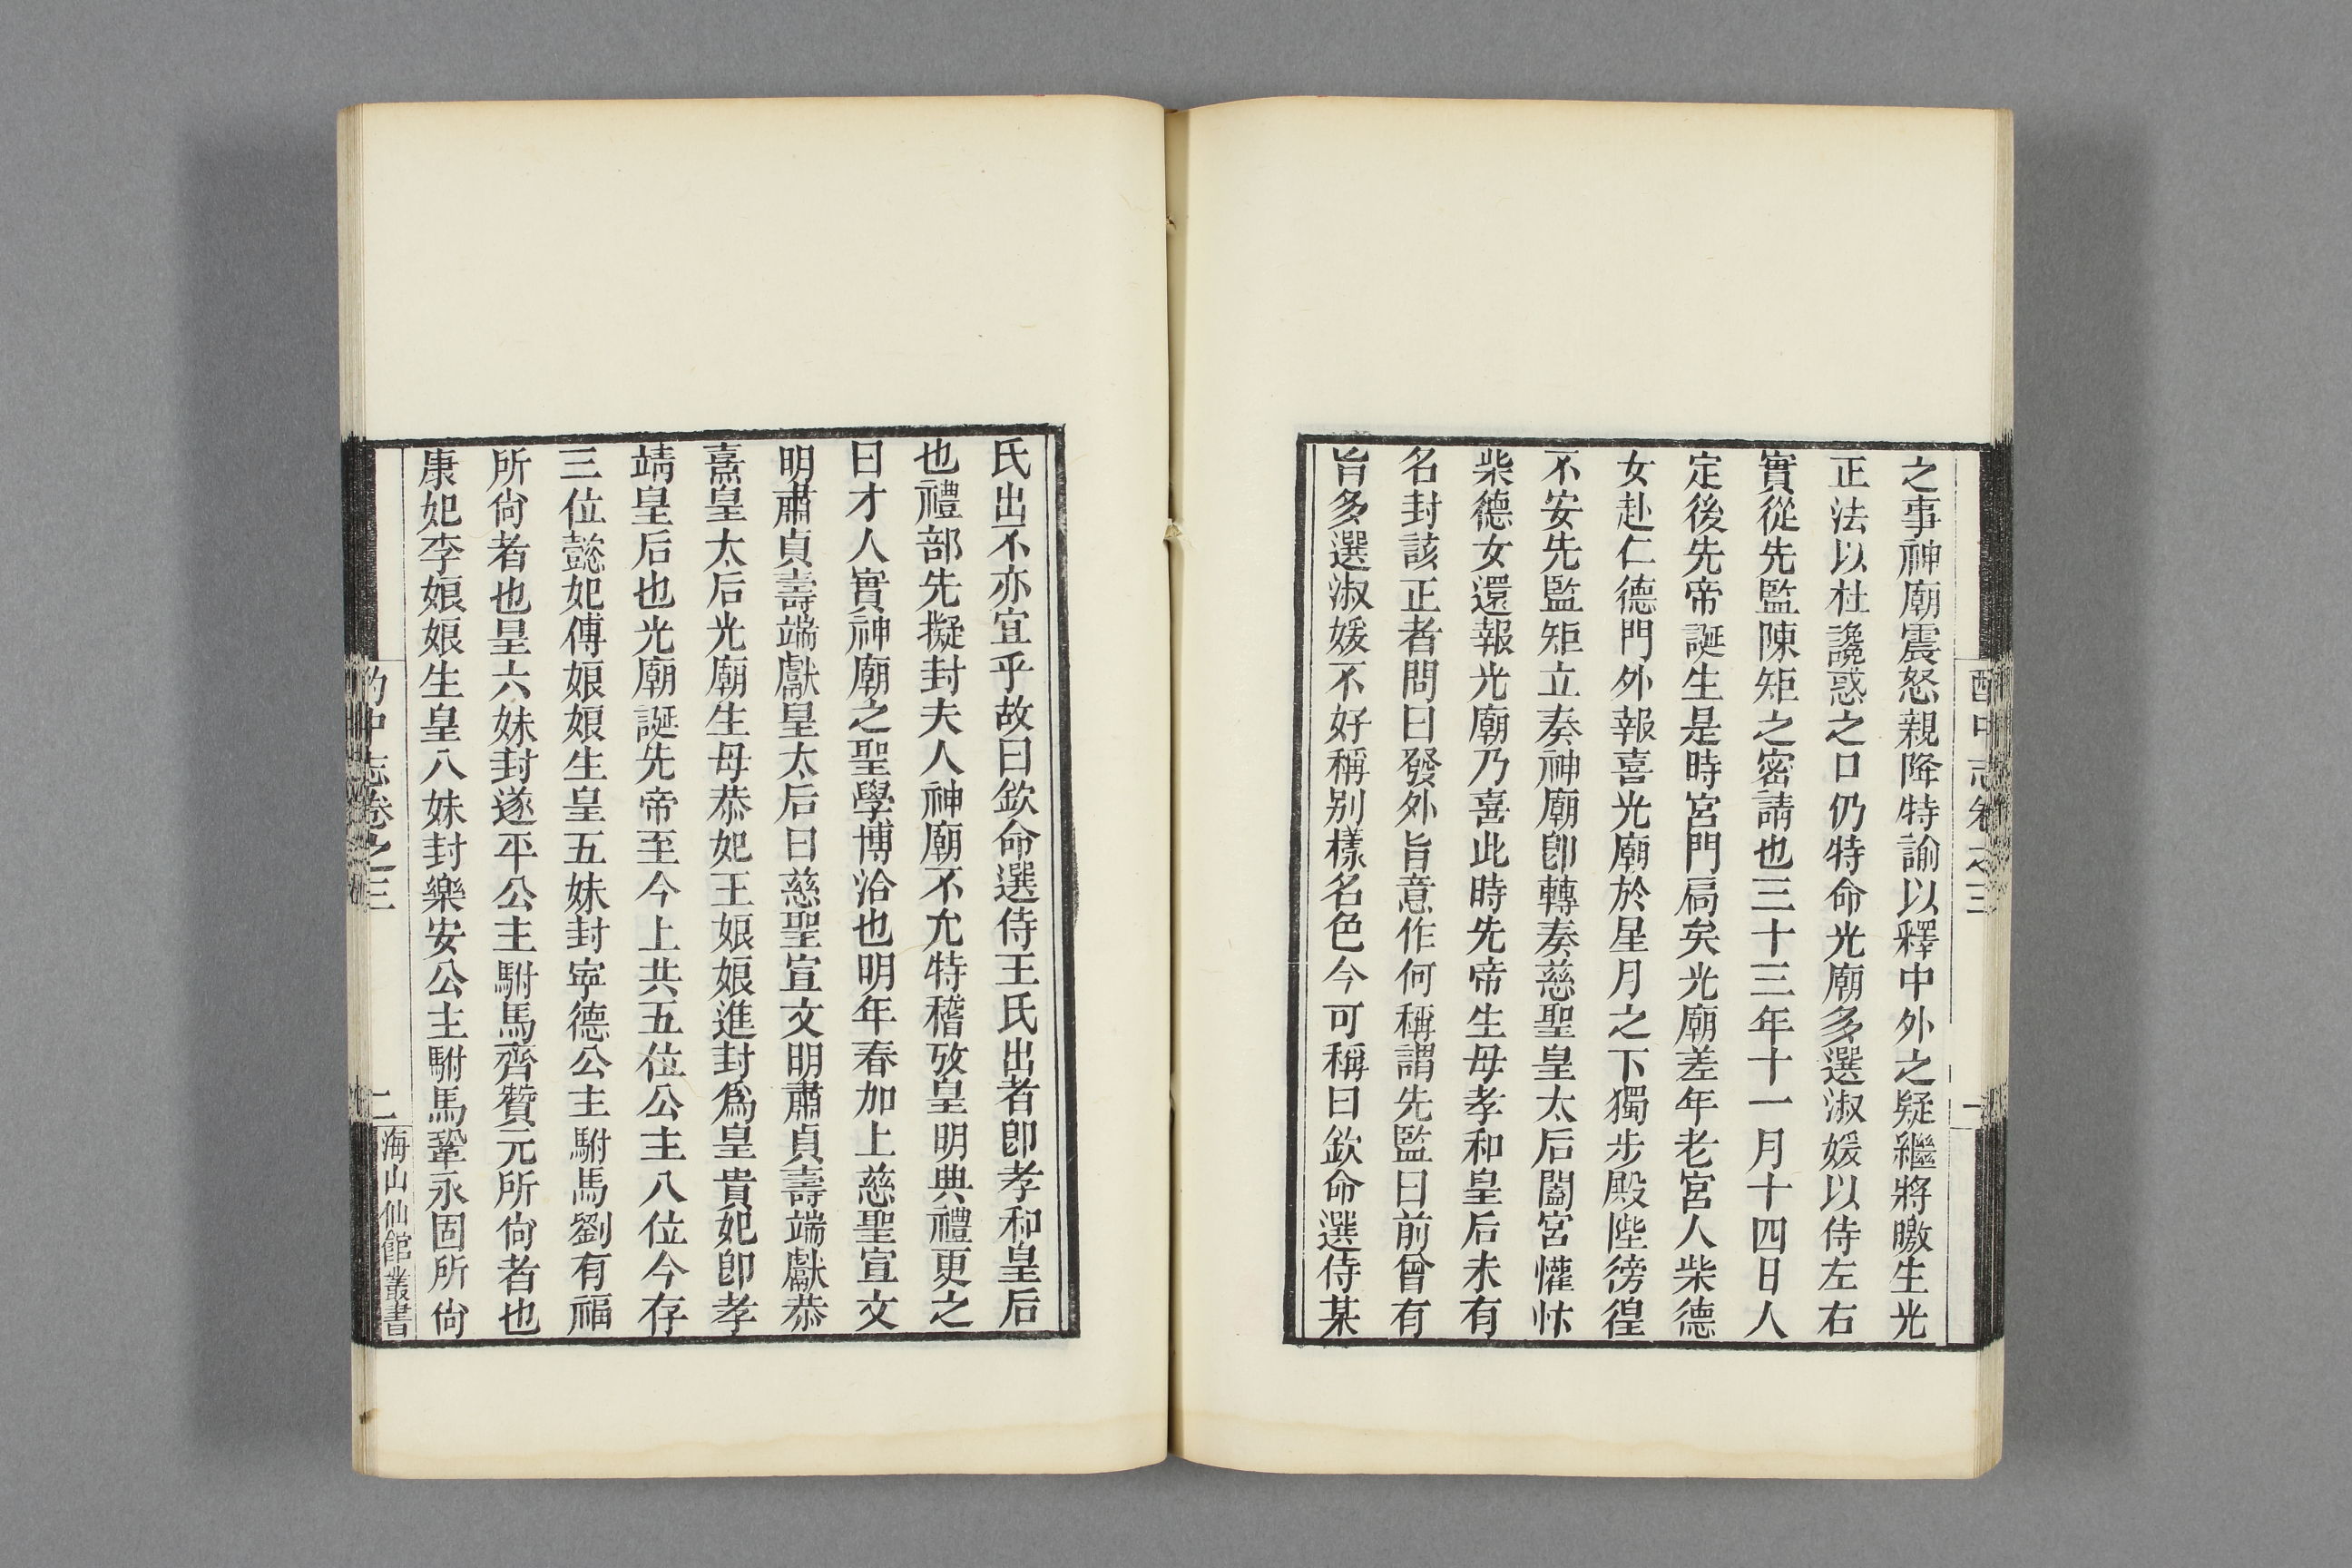 酌中志卷之三
一
之事神廟震怒親降特諭以釋中外之疑繼將曒生光
正法以杜讒惑之口仍特命光廟多選淑媛以侍左右
實從先監陳矩之密請也三十三年十一月十四日人
定後先帝誕生是時宮門扃矣光廟差年老宮人柴德
女赴仁德門外報喜光廟於星月之下獨步殿陛徬徨
不安先監矩立奏神廟卽轉奏慈聖皇太后闔宮懽忭
柴德女還報光廟乃喜此時先帝生母孝和皇后未有
名封該正者問曰發外旨意作何稱謂先監曰前曾有
旨多選淑媛不好稱别樣名色今可稱曰欽命選侍某
氏出不亦宜乎故曰欽命選侍王氏出者卽孝和皇后
也禮部先擬封夫人神廟不允特稽攷皇明典禮更之
曰才人實神廟之聖學博洽也明年春加上慈聖宣文
明肅貞壽端獻皇太后曰慈聖宣文明肅貞壽端獻恭
熹皇太后光廟生母恭妃王娘娘進封爲皇貴妃卽孝
靖皇后也光廟誕先帝至今上共五位公主八位今存
三位懿妃傅娘娘生皇五妹封寜德公主駙馬劉有福
所尙者也皇六妹封遂平公主駙馬齊贊元所尙者也
康妃李娘娘生皇八妹封樂安公主駙馬鞏永固所尙
酌中志卷之三
二
海山仙館叢書